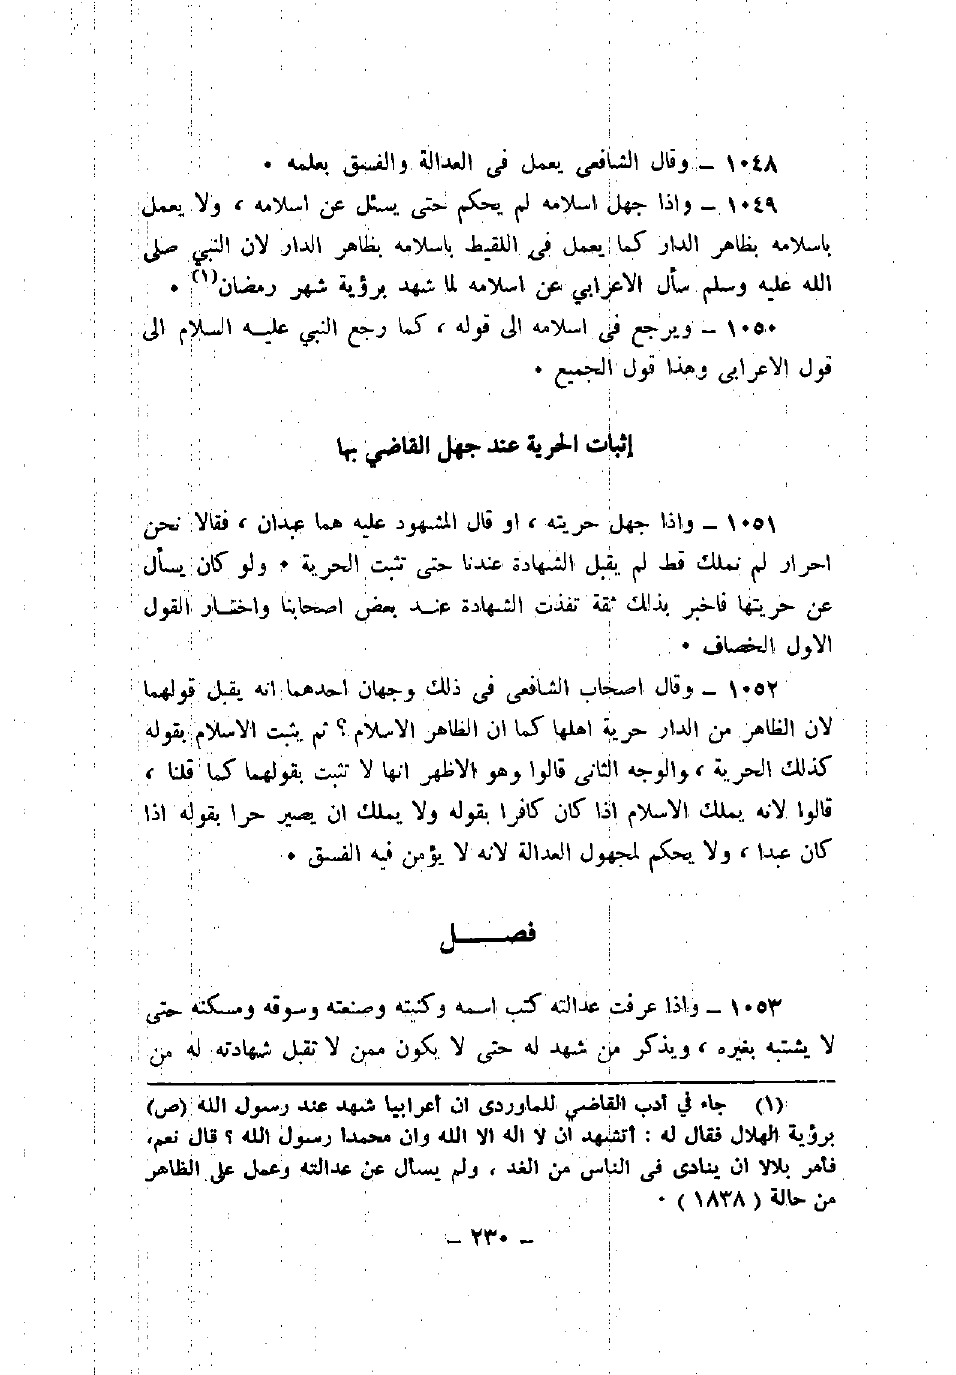 ١٠٤٨ ــ وقال الشافعي يعمل في العدالة والفسق بعلمه •
١٠٤٩ ــ واذا جهل اسلامه لم يحكم حتى يسئل عن اسلامه ، ولا يعمل
باسلامه بظاهر الدار كما يعمل في اللقيط باسلامه بظاهر الدار لان النبي صلى
الله عليه وسلم سأل الاعرابي عن اسلامه لما شهد برؤية شهر رمضان(١) •
١٠٥٠ ــ ويرجع في اسلامه الى قوله ، كما رجع النبي عليه السلام الى
قول الاعرابى وهذا قول الجميع •
إثبات الحرية عند جهل القاضي بها
١٠٥١ ــ واذا جهل حريته ، او قال المشهود عليه هما عبدان ، فقالا نحن
احرار لم نملك قط لم يقبل الشهادة عندنا حتى تثبت الحرية • ولو كان يسأل
عن حريتها فاخبر بذلك ثقة تفذت الشهادة عند بعض اصحابنا واختار القول
الاول الخصاف •
١٠٥٢ ــ وقال اصحاب الشافعى فى ذلك وجهان احدهما انه يقبل قولهما
لان الظاهر من الدار حرية اهلها كما ان الظاهر الاسلام ؟ ثم يثبت الاسلام بقوله
كذلك الحرية ، والوجه الثانى قالوا وهو الاظهر انها لا تثبت بقولهما كما قلنا ،
قالوا لانه يملك الاسلام اذا كان كافرا بقوله ولا يملك ان يصير حرا بقوله اذا
كان عبدا ، ولا يحكم لمجهول العدالة لانه لا يؤمن فيه الفسق •
فصـــــل
١٠٥٣ ــ واذا عرفت عدالته كتب اسمه وكنيته وصنعته وسوقه ومسكنه حتى
لا يشتبه بغيره ، ويذكر من شهد له حتى لا يكون ممن لا تقبل شهادته له من
(١) جاء في أدب القاضي للماوردى ان أعرابيا شهد عند رسول الله (ص)
برؤية الهلال فقال له : أتشهد أن لا اله الا الله وان محمدا رسول الله ؟ قال نعم،
فأمر بلالا ان ينادى فى الناس من الغد ، ولم يسأل عن عدالته وعمل على الظاهر
من حالة ( ١٨٣٨ ) •
ــ ٢٣٠ ــ